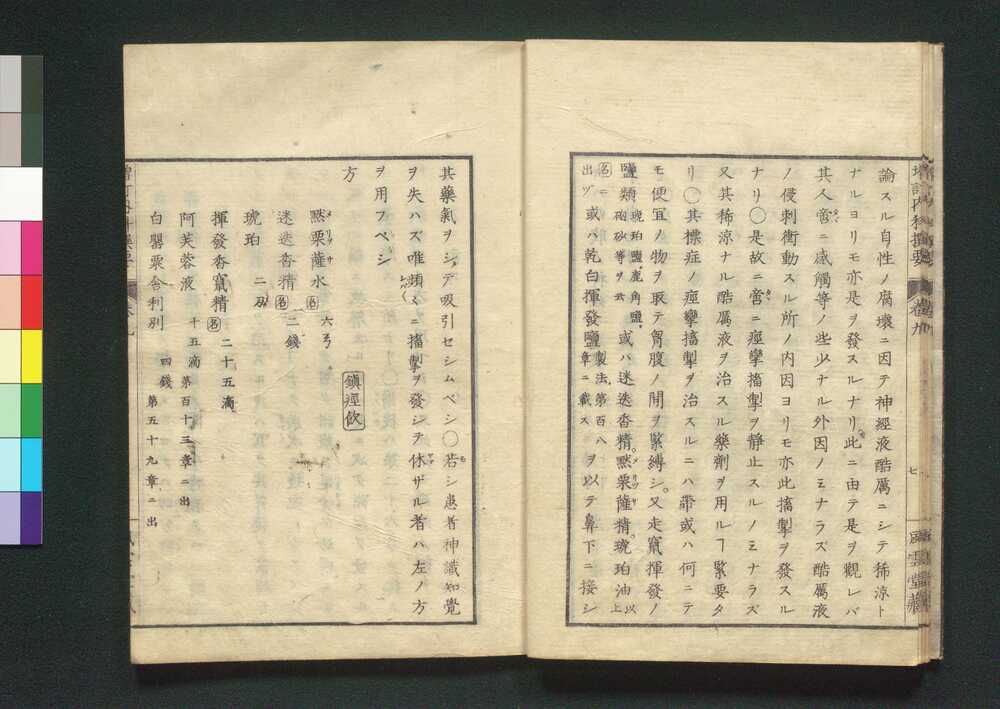 論スル自性ノ腐壊ニ因テ神經液酷厲ニシテ稀涼ト
ナルヨリモ亦是ヲ發スルナリ此ニ由テ是ヲ觀レバ
其人啻ニ感觸等ノ些少ナル外因ノミナラズ酷厲液
ノ侵刺衝動スル所ノ内因ヨリモ亦此搐掣ヲ發スル
ナリ○是故ニ啻ニ痙攣搐掣ヲ靜止スルノミナラズ
又其稀涼ナル酷厲液ヲ治スル藥劑ヲ用ルヿ緊要タ
リ○其標症ノ痙攣搐掣ヲ治スルニハ帶或ハ何ニテ
モ便宜ノ物ヲ取テ胷腹ノ間ヲ緊縛シ又走竄揮發ノ
鹽類琥珀鹽鹿角鹽硇砂等ヲ云或ハ迷迭香精默栗薩精琥珀油以上
名ニ出ヅ或ハ乾白揮發鹽製法第百八章ニ載スヲ以テ鼻下ニ接シ
増訂内科撰要
卷九
七
風雲堂藏
其藥氣ヲシテ吸引セシムベシ○若シ患者神識知覺
ヲ失ハズ唯頻々ニ搐掣ヲ發シテ休ザル者ハ左ノ方
ヲ用フベシ
方
鎮痙飲
默栗薩水名 六弓
迷迭香精名 二錢
琥珀 二刄
揮發香竄精名 二十五滴
阿芙蓉液 十五滴 第百十三章ニ出
白罌粟舎利別 四錢 第五十九章ニ出